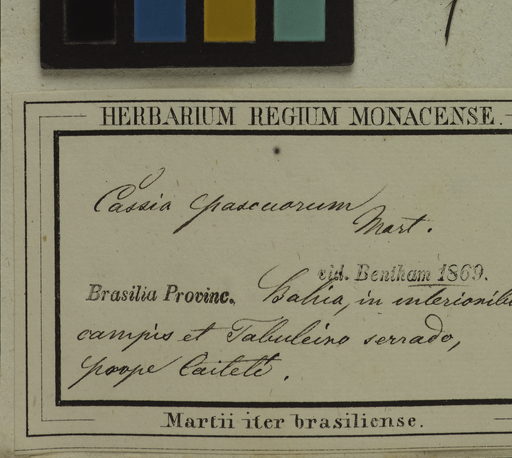 HERBARIUM REGIUM MONACENSE.
Cassia pascuorum
Mart.
vid. Bentham 1869.
Brasilia Provinc. Bahia, in interioribu
campis et Tabuleiro serrado,
prope Caiteté.
Martii iter brasiliense.